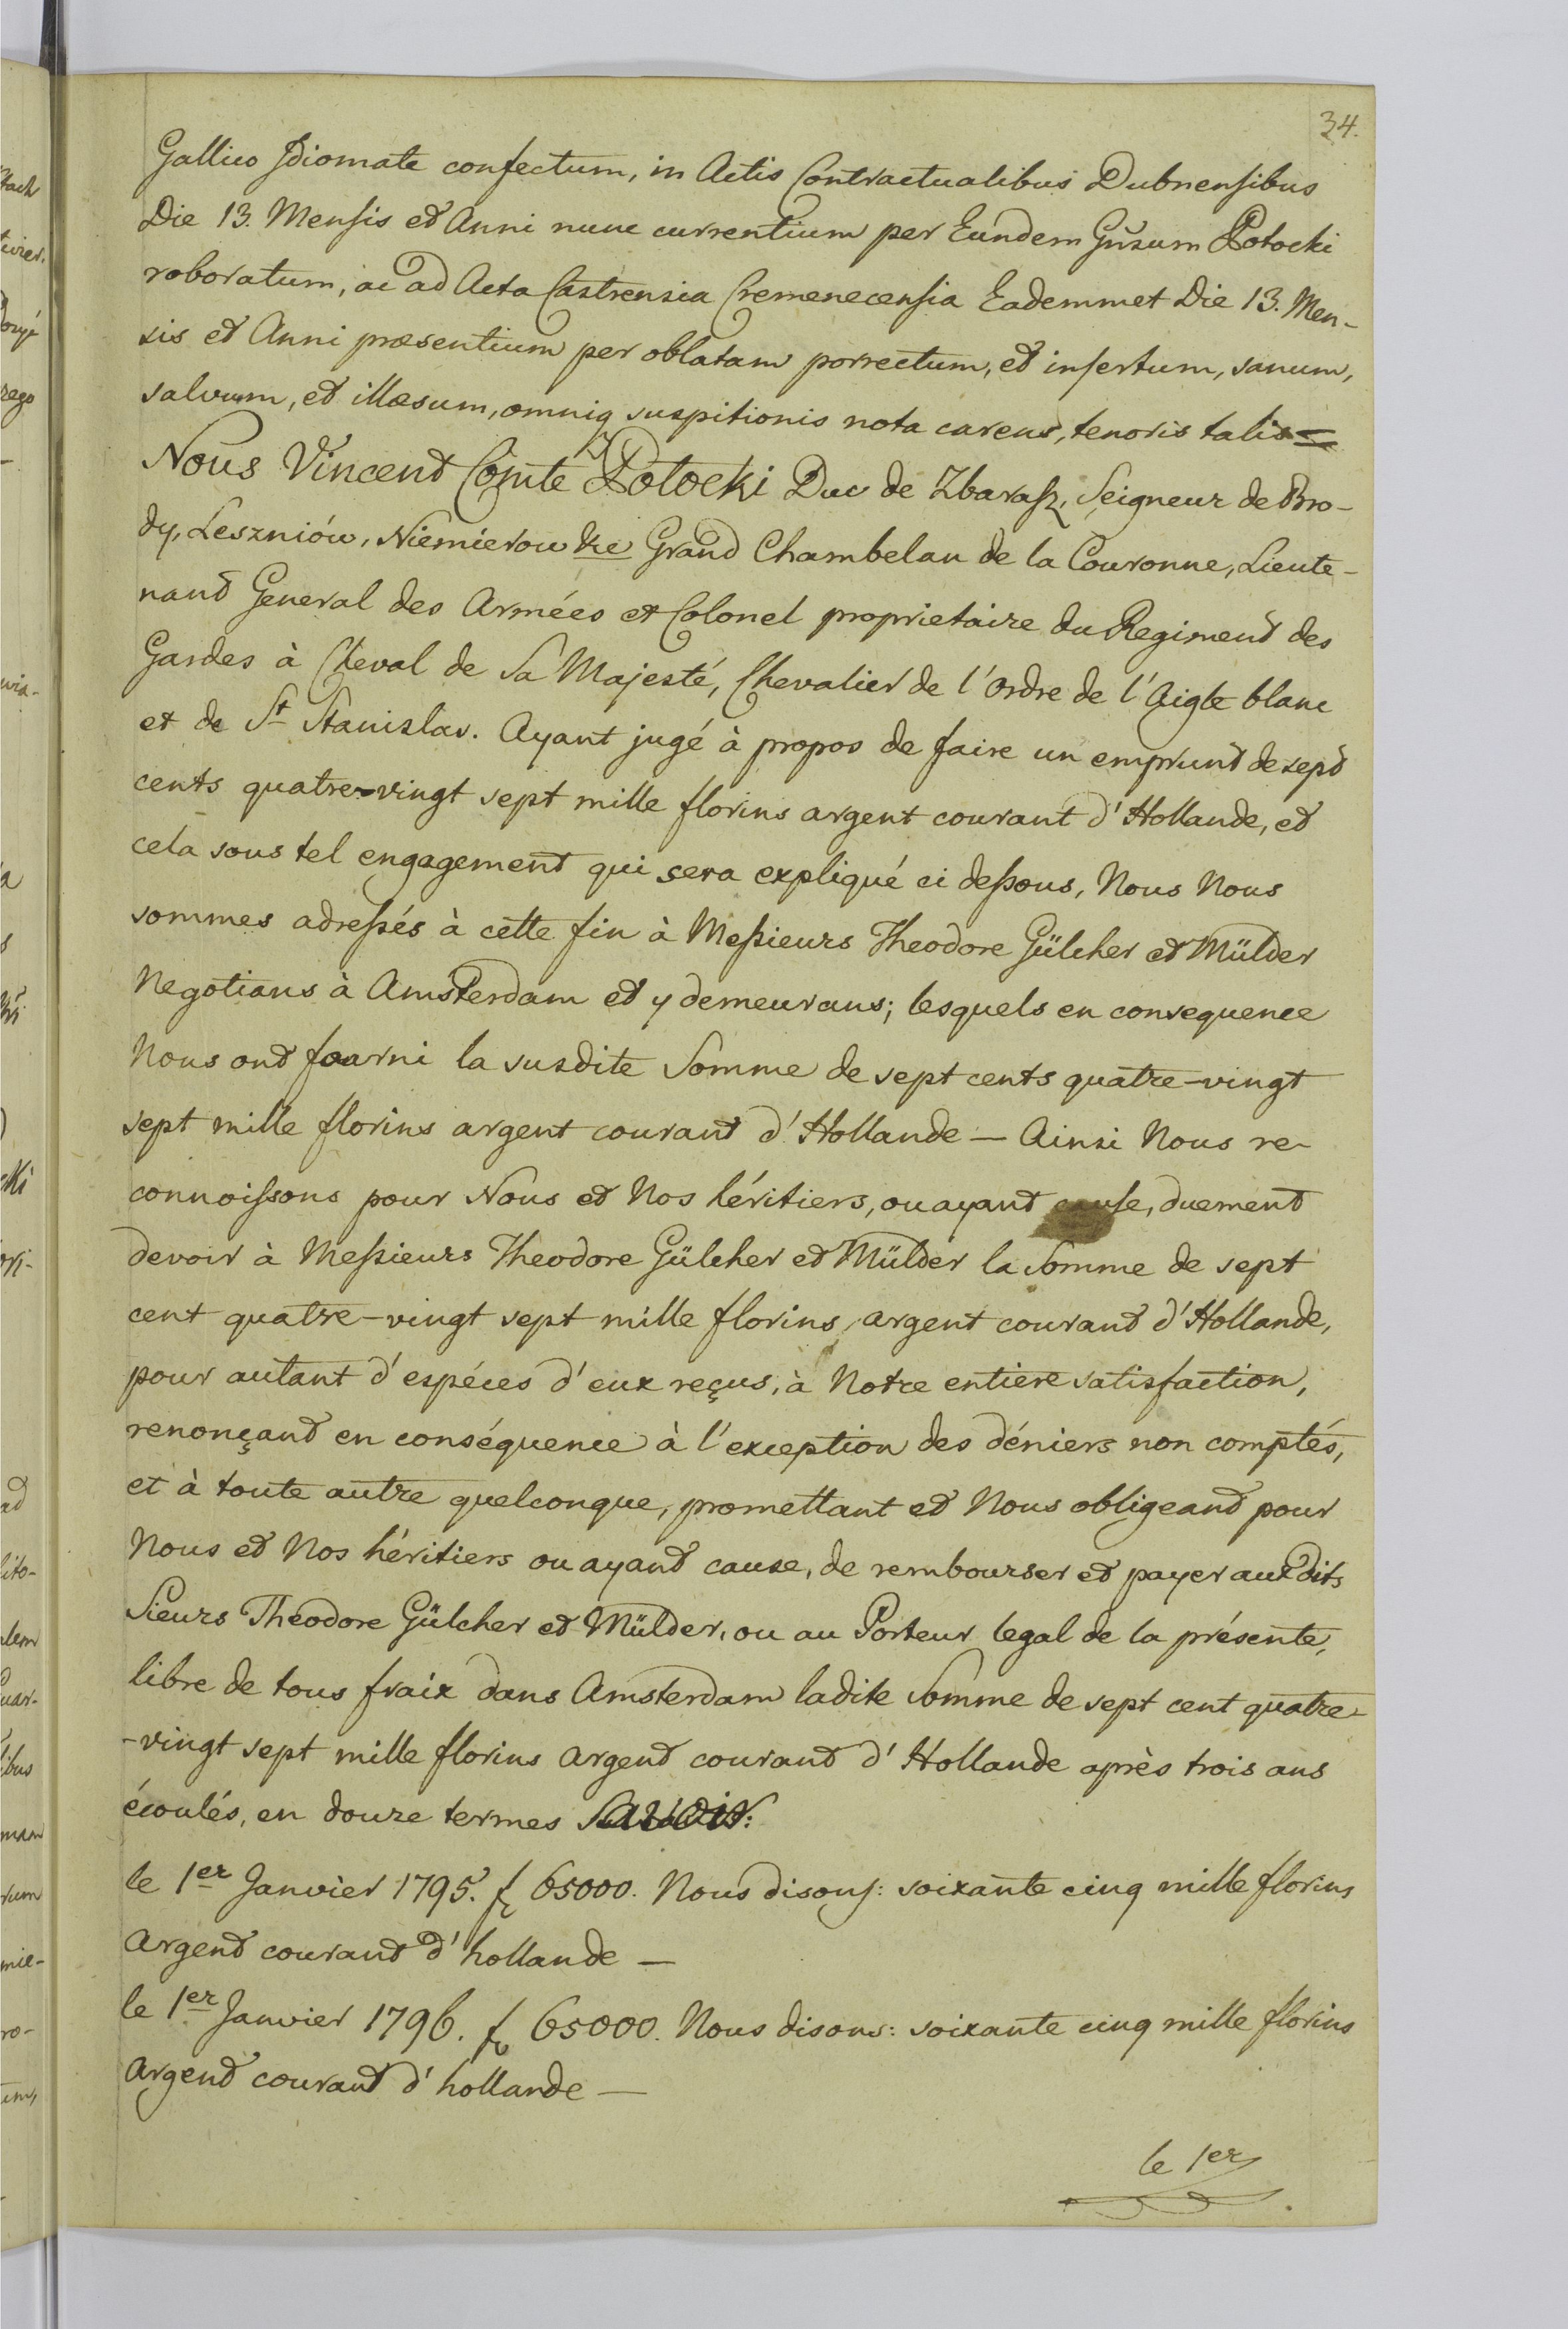 34.
Gallico Idiomate confectum, in Actis Contractualibus Dubnensibus
Die 13. Mensis et Anni nunc currentium per Eundem Gñsum Potocki
roboratum, ac ad Acta Castrensia Cremenecensia Eademmet Die 13. Men-
sis et Anni præsentium per oblatam porrectum, et insertum, sanum,
salvum, et illæsum, omniq suspitionis nota carens, tenoris talis =
Nous Vincent Comte Potocki Duc de Zbarasz, Seigneur de Bro-
dy, Leszniów, Niemierow &c Grand Chambelan de la Couronne, Lieute-
nant General des Armées et Colonel proprietaire du Regiment des
Gardes à Cheval de Sa Majesté, Chevalier de l'Ordre de l'Aigle blanc
et de St Stanislav. Ayant jugé à propos de faire un emprunt de sept
cents quatre-vingt sept mille florins argent courant d'Hollande, et
cela sous tel engagement qui sera expliqué ci dessous, Nous Nous
sommes adressés à cette fin à Messieurs Theodore Gülcher et Mülder
Negotians à Amsterdam et y demeurans; lesquels en consequence
Nous ont fourni la susdite Somme de sept cents quatre-vingt
sept mille florins argent courant d'Hollande — Ainsi Nous re-
connoissons pour Nous et Nos héritiers, ou ayant cause, duement
devoir à Messieurs Theodore Gülcher et Mülder la Somme de sept
cent quatre-vingt sept mille florins, argent courant d'Hollande,
pour autant d'espéces d'eux reçus, à Notre entiere satisfaction,
renonçant en conséquence à l'exception des déniers non comptés,
et à toute autre quelconque, promettant et Nous obligeant pour
Nous et Nos héritiers ou ayant cause, de rembourser et payer aux dits
Sieurs Théodore Gülcher et Mülder, ou au Porteur legal de la présente,
libre de tous fraix dans Amsterdam ladite Somme de sept cent quatre-
-vingt sept mille florins argent courant d'Hollande après trois ans
écoulés, en douze termes Savoir:
le 1er Janvier 1795. f 65000. Nous disons: soixante cinq mille florins
argent courant d'hollande —
le 1er Janvier 1796. f 65000. Nous disons: soixante cinq mille florins
argent courant d'hollande —
le 1er